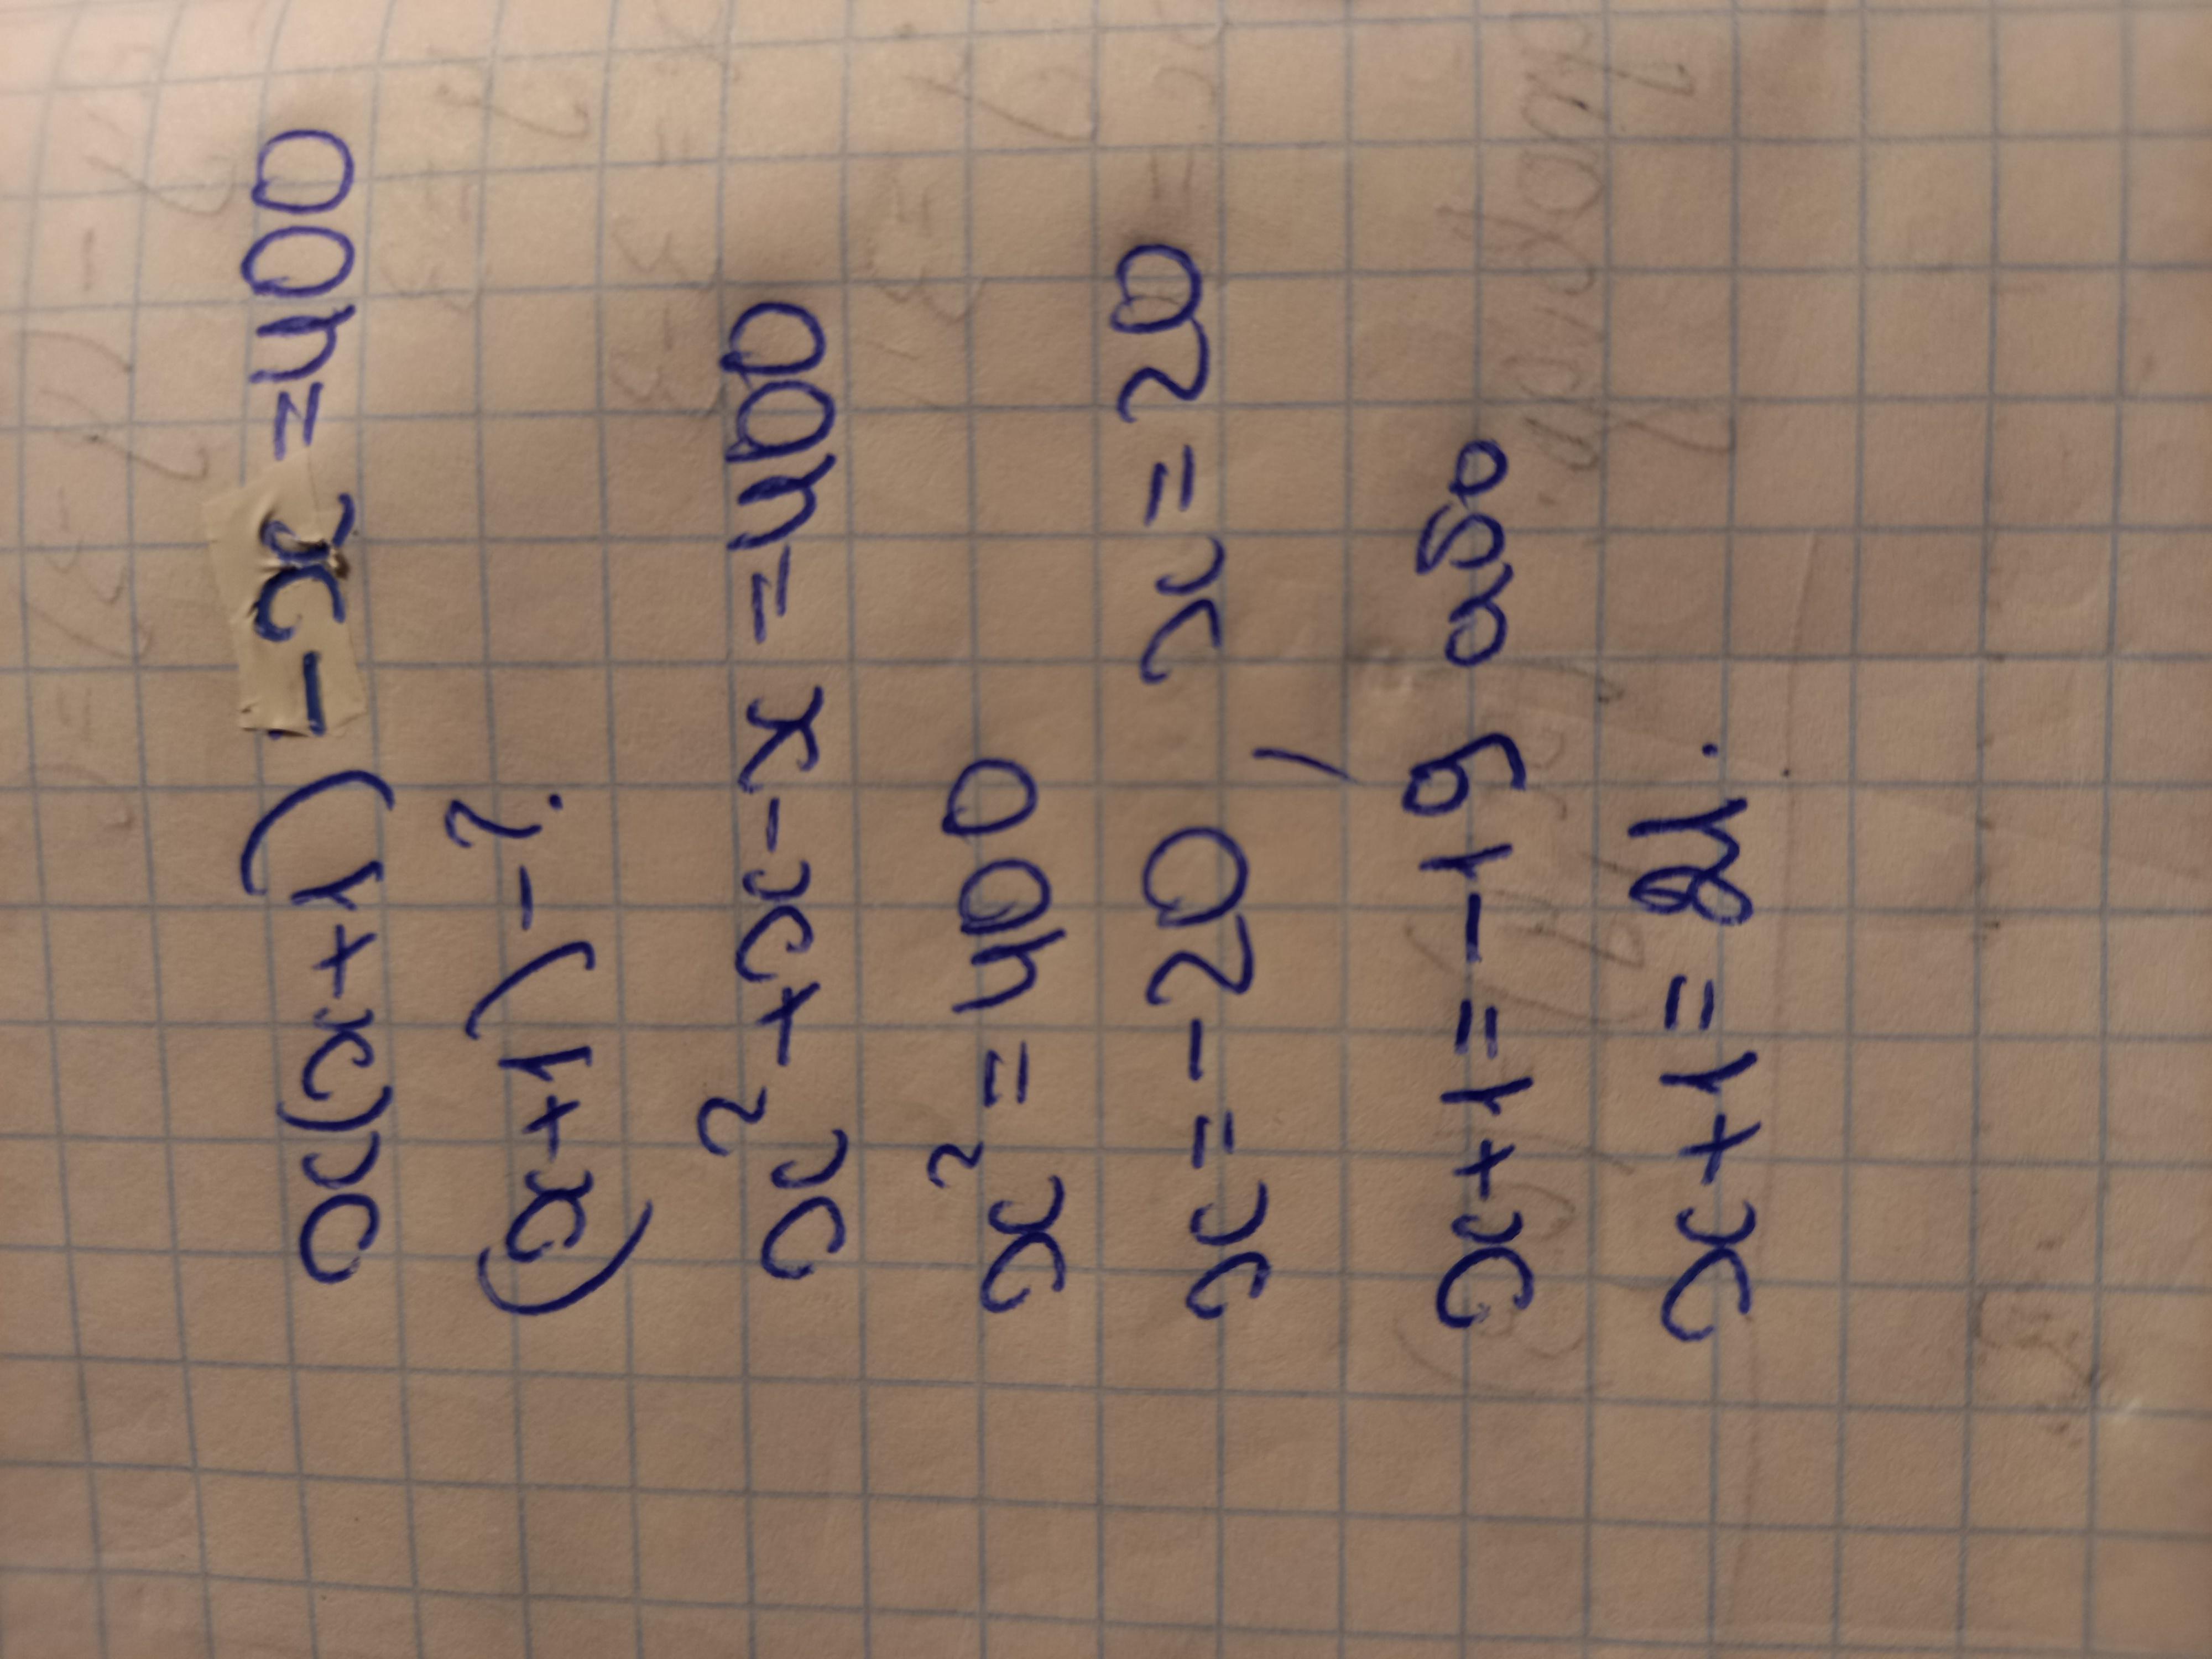 x(x+1) - x = 400
(x+1) - ?
x² + x - x = 400
x² = 400
x = -20, x = 20
x+1 = -19 або
x+1 = 21.